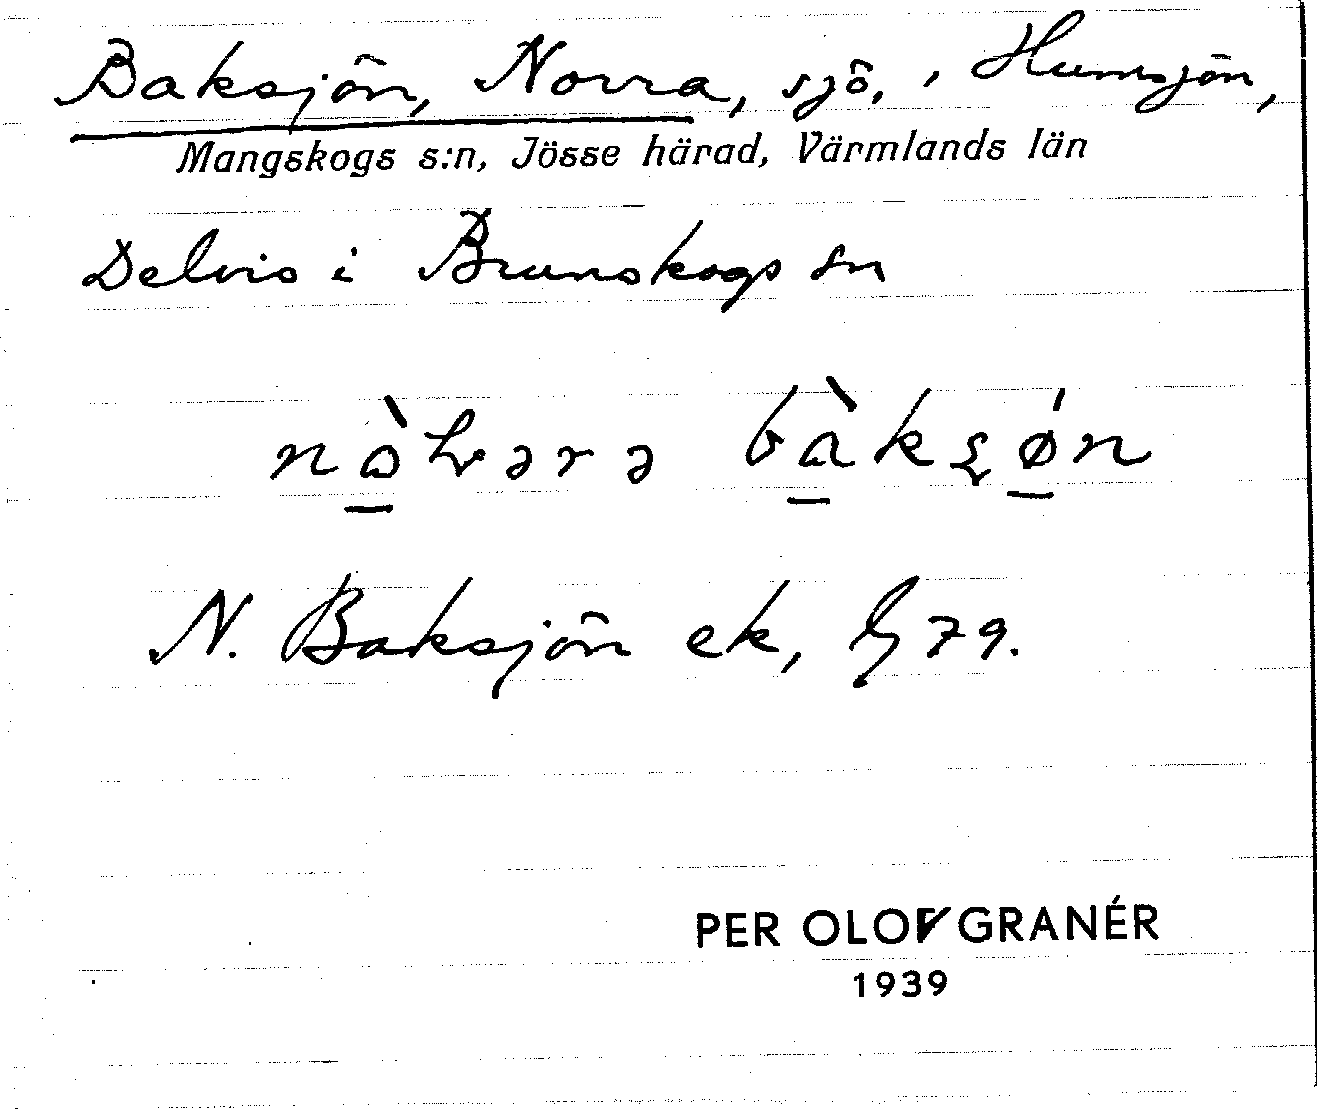 Baksjön, Norra, sjö, , Humsjön,
Mangskogs s:n, Jösse härad, Värmlands län
Delvis i Brunskogs sn
bàksøn
N. Baksjön ek, 79.
PER OLOF GRANÉR
1939